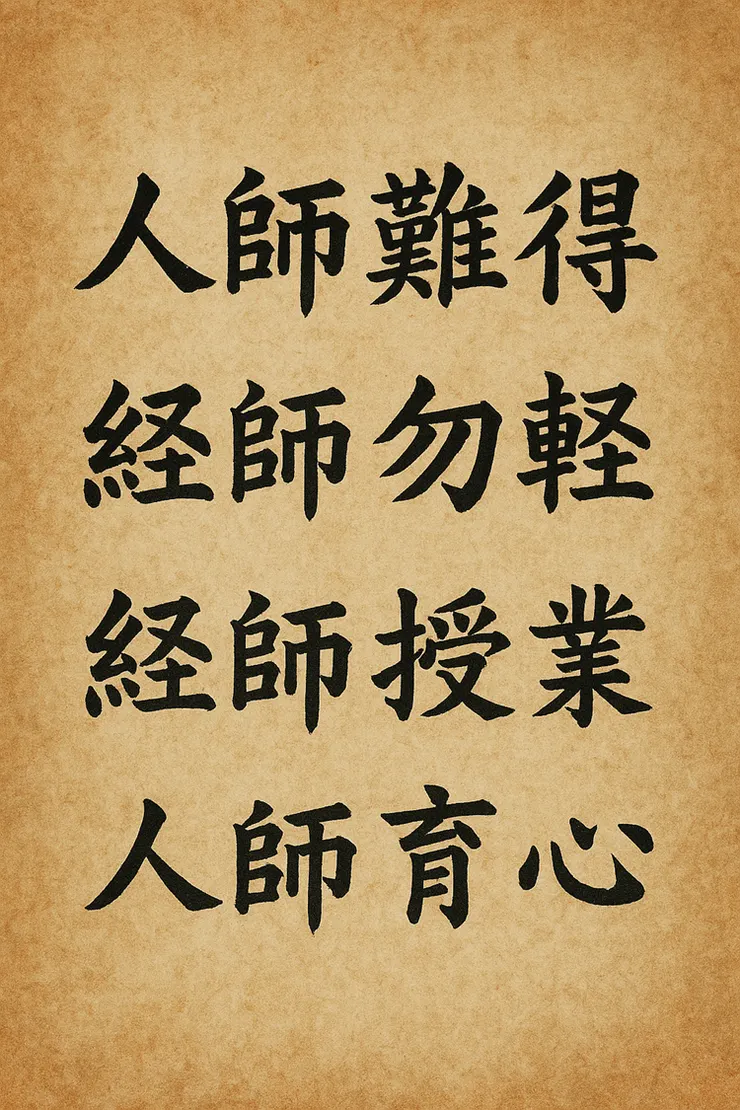 人師難得
経師勿軽
経師授業
人師育心